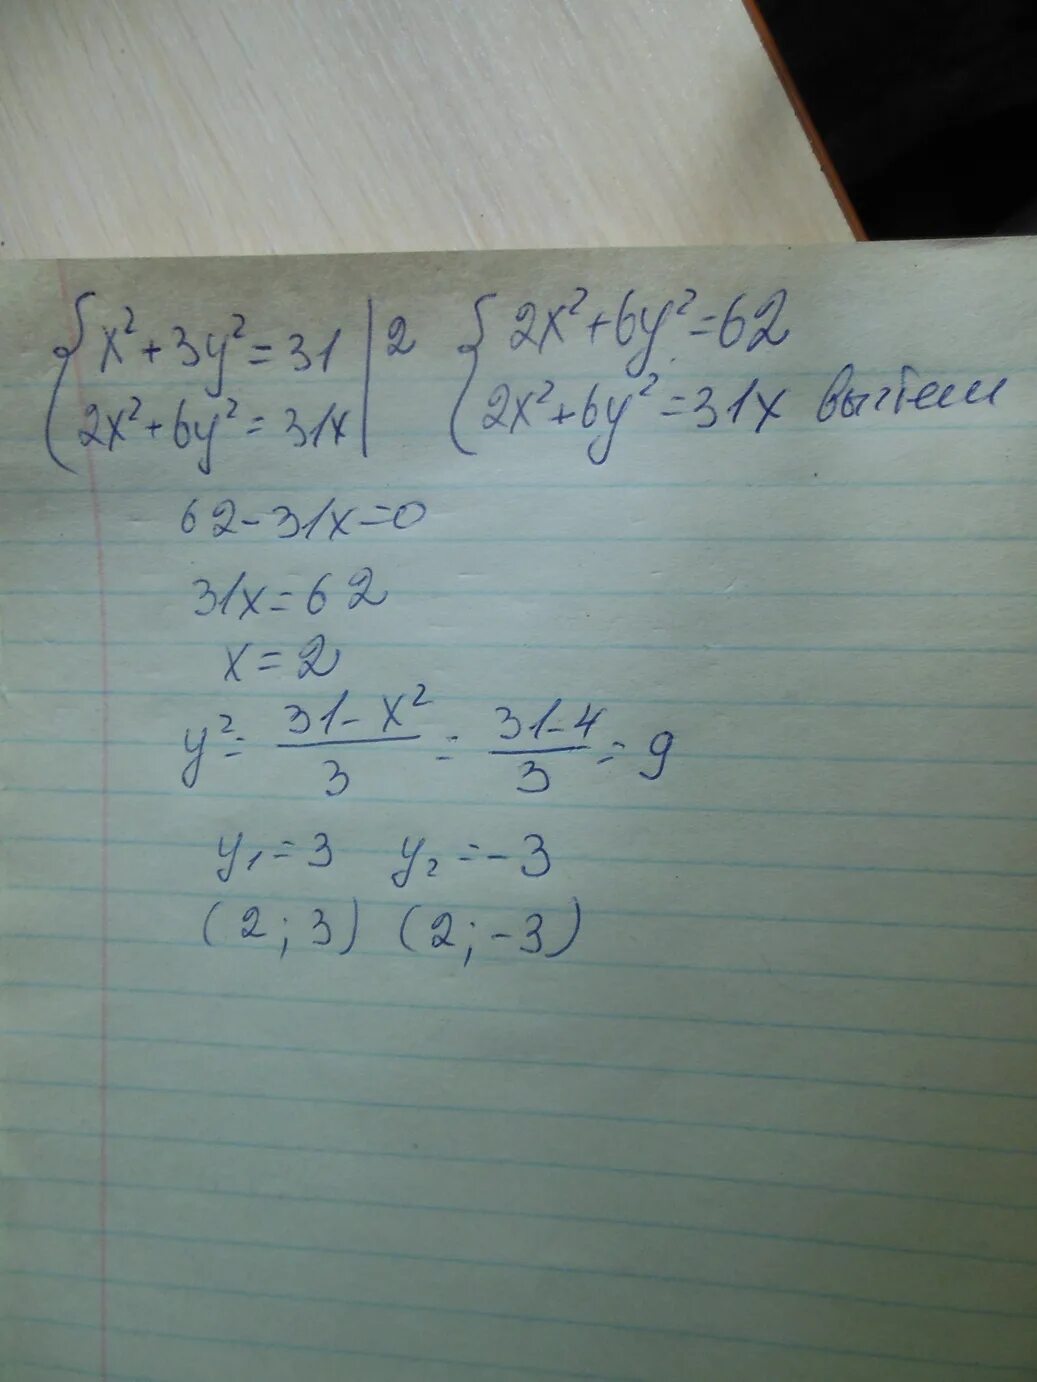 {x²+3y²=31 | 2 {2x²+6y²=62
2x²+6y²=31x 2x²+6y²=31x вычтем
62-31x=0
31x=62
x=2
y²= (31-x²)/3 = (31-4)/3 = 9
y₁=3 y₂=-3
(2;3) (2;-3)